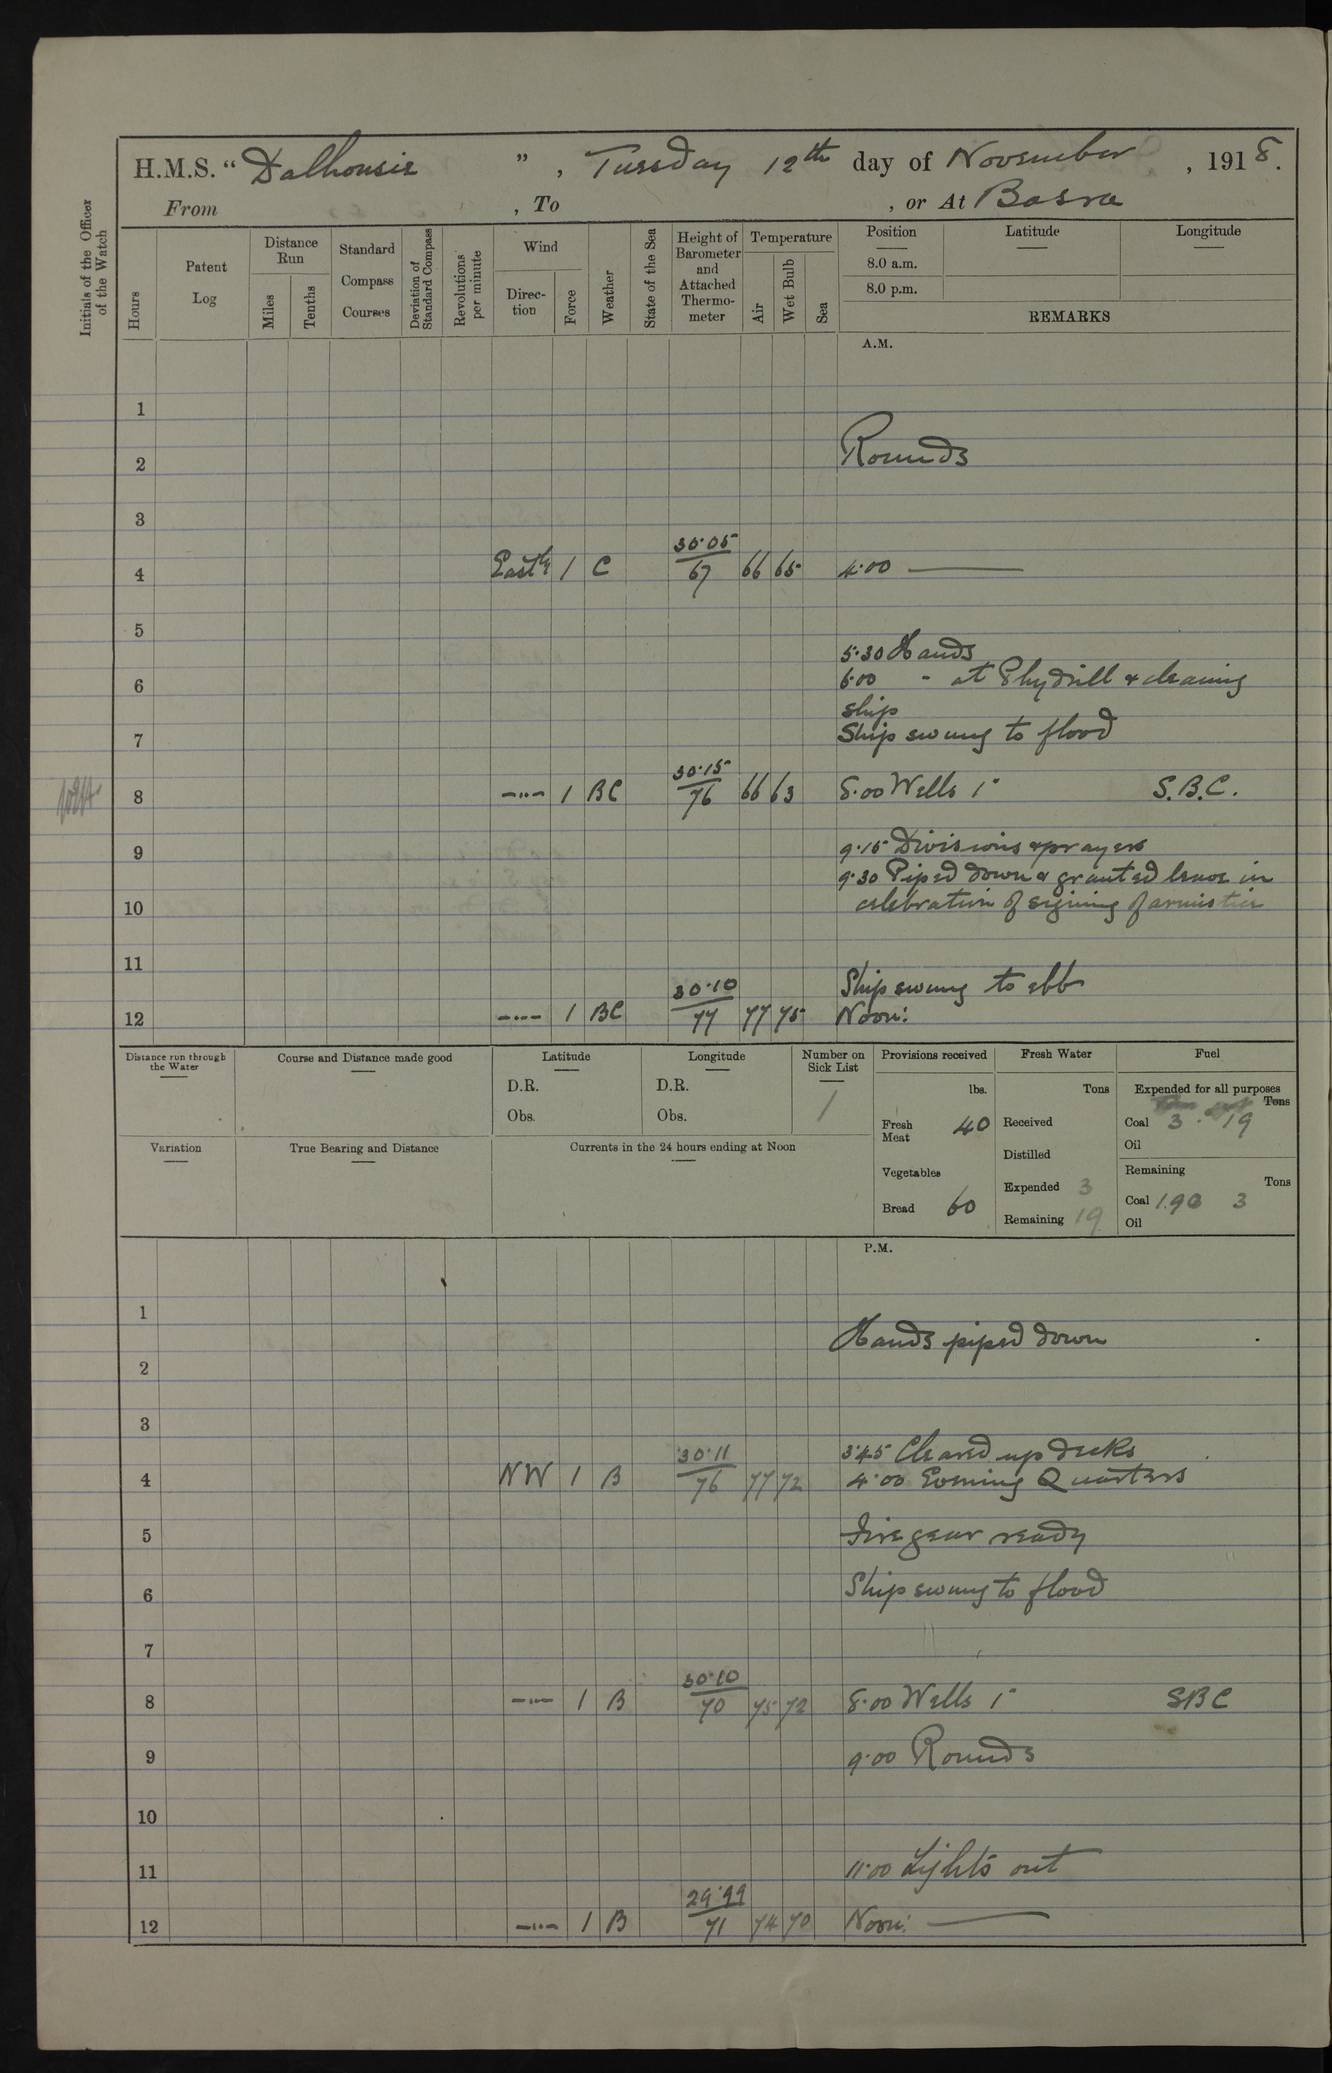 H.M.S. "Dalhousie", Tuesday 12th day of November, 1918.
From , To , or At Basra
Initials of the Officer of the Watch
Hours
Patent Log
Distance Run
Miles
Tenths
Standard Compass Courses
Deviation of Standard Compass
Revolutions per minute
Wind
Direction
Force
Weather
State of the Sea
Height of Barometer and Attached Thermometer
Temperature
Air
Wet Bulb
Sea
Position
8.0 a.m.
8.0 p.m.
Latitude
Longitude
REMARKS
A.M.
1
2 Rounds
3
4 Eastly 1 C 30·05 67 66 65 4·00
5
5·30 Hands
6 6·00 " at Phy drill & cleaning
ship
7 Ship swung to flood
8 —"— 1 BC 30·15 76 66 63 8·00 Wells 1" S.B.C.
9 9·15 Divisions & prayers
9·30 Piped down & granted leave in
10 celebration of signing of armistice
11
Ship swung to ebb
12 —"— 1 BC 30·10 77 77 75 Noon:
Distance run through the Water
Course and Distance made good
Latitude
D.R.
Obs.
Longitude
D.R.
Obs.
Number on Sick List
1
Provisions received
lbs.
Fresh Meat 40
Vegetables
Bread 60
Fresh Water
Tons
Received
Distilled
Expended 3
Remaining 19
Fuel
Expended for all purposes
Tons
Coal 3 · 19
Oil
Remaining
Tons
Coal 3
Oil
Variation
True Bearing and Distance
Currents in the 24 hours ending at Noon
P.M.
1
Hands piped down
2
3
3·45 Cleared up decks
4 NW 1 B 30·11 76 77 72 4·00 Evening Quarters
5 Fire gear ready
6 Ship swung to flood
7
8 —"— 1 B 30·10 70 75 72 8·00 Wells 1" SBC
9 9·00 Rounds
10
11 11·00 Lights out
12 —"— 1 B 29·99 71 74 70 Noon: